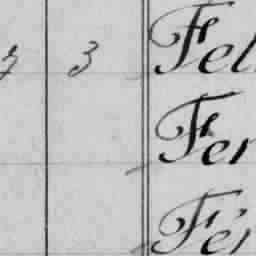 3 Fel
Fer
Fer